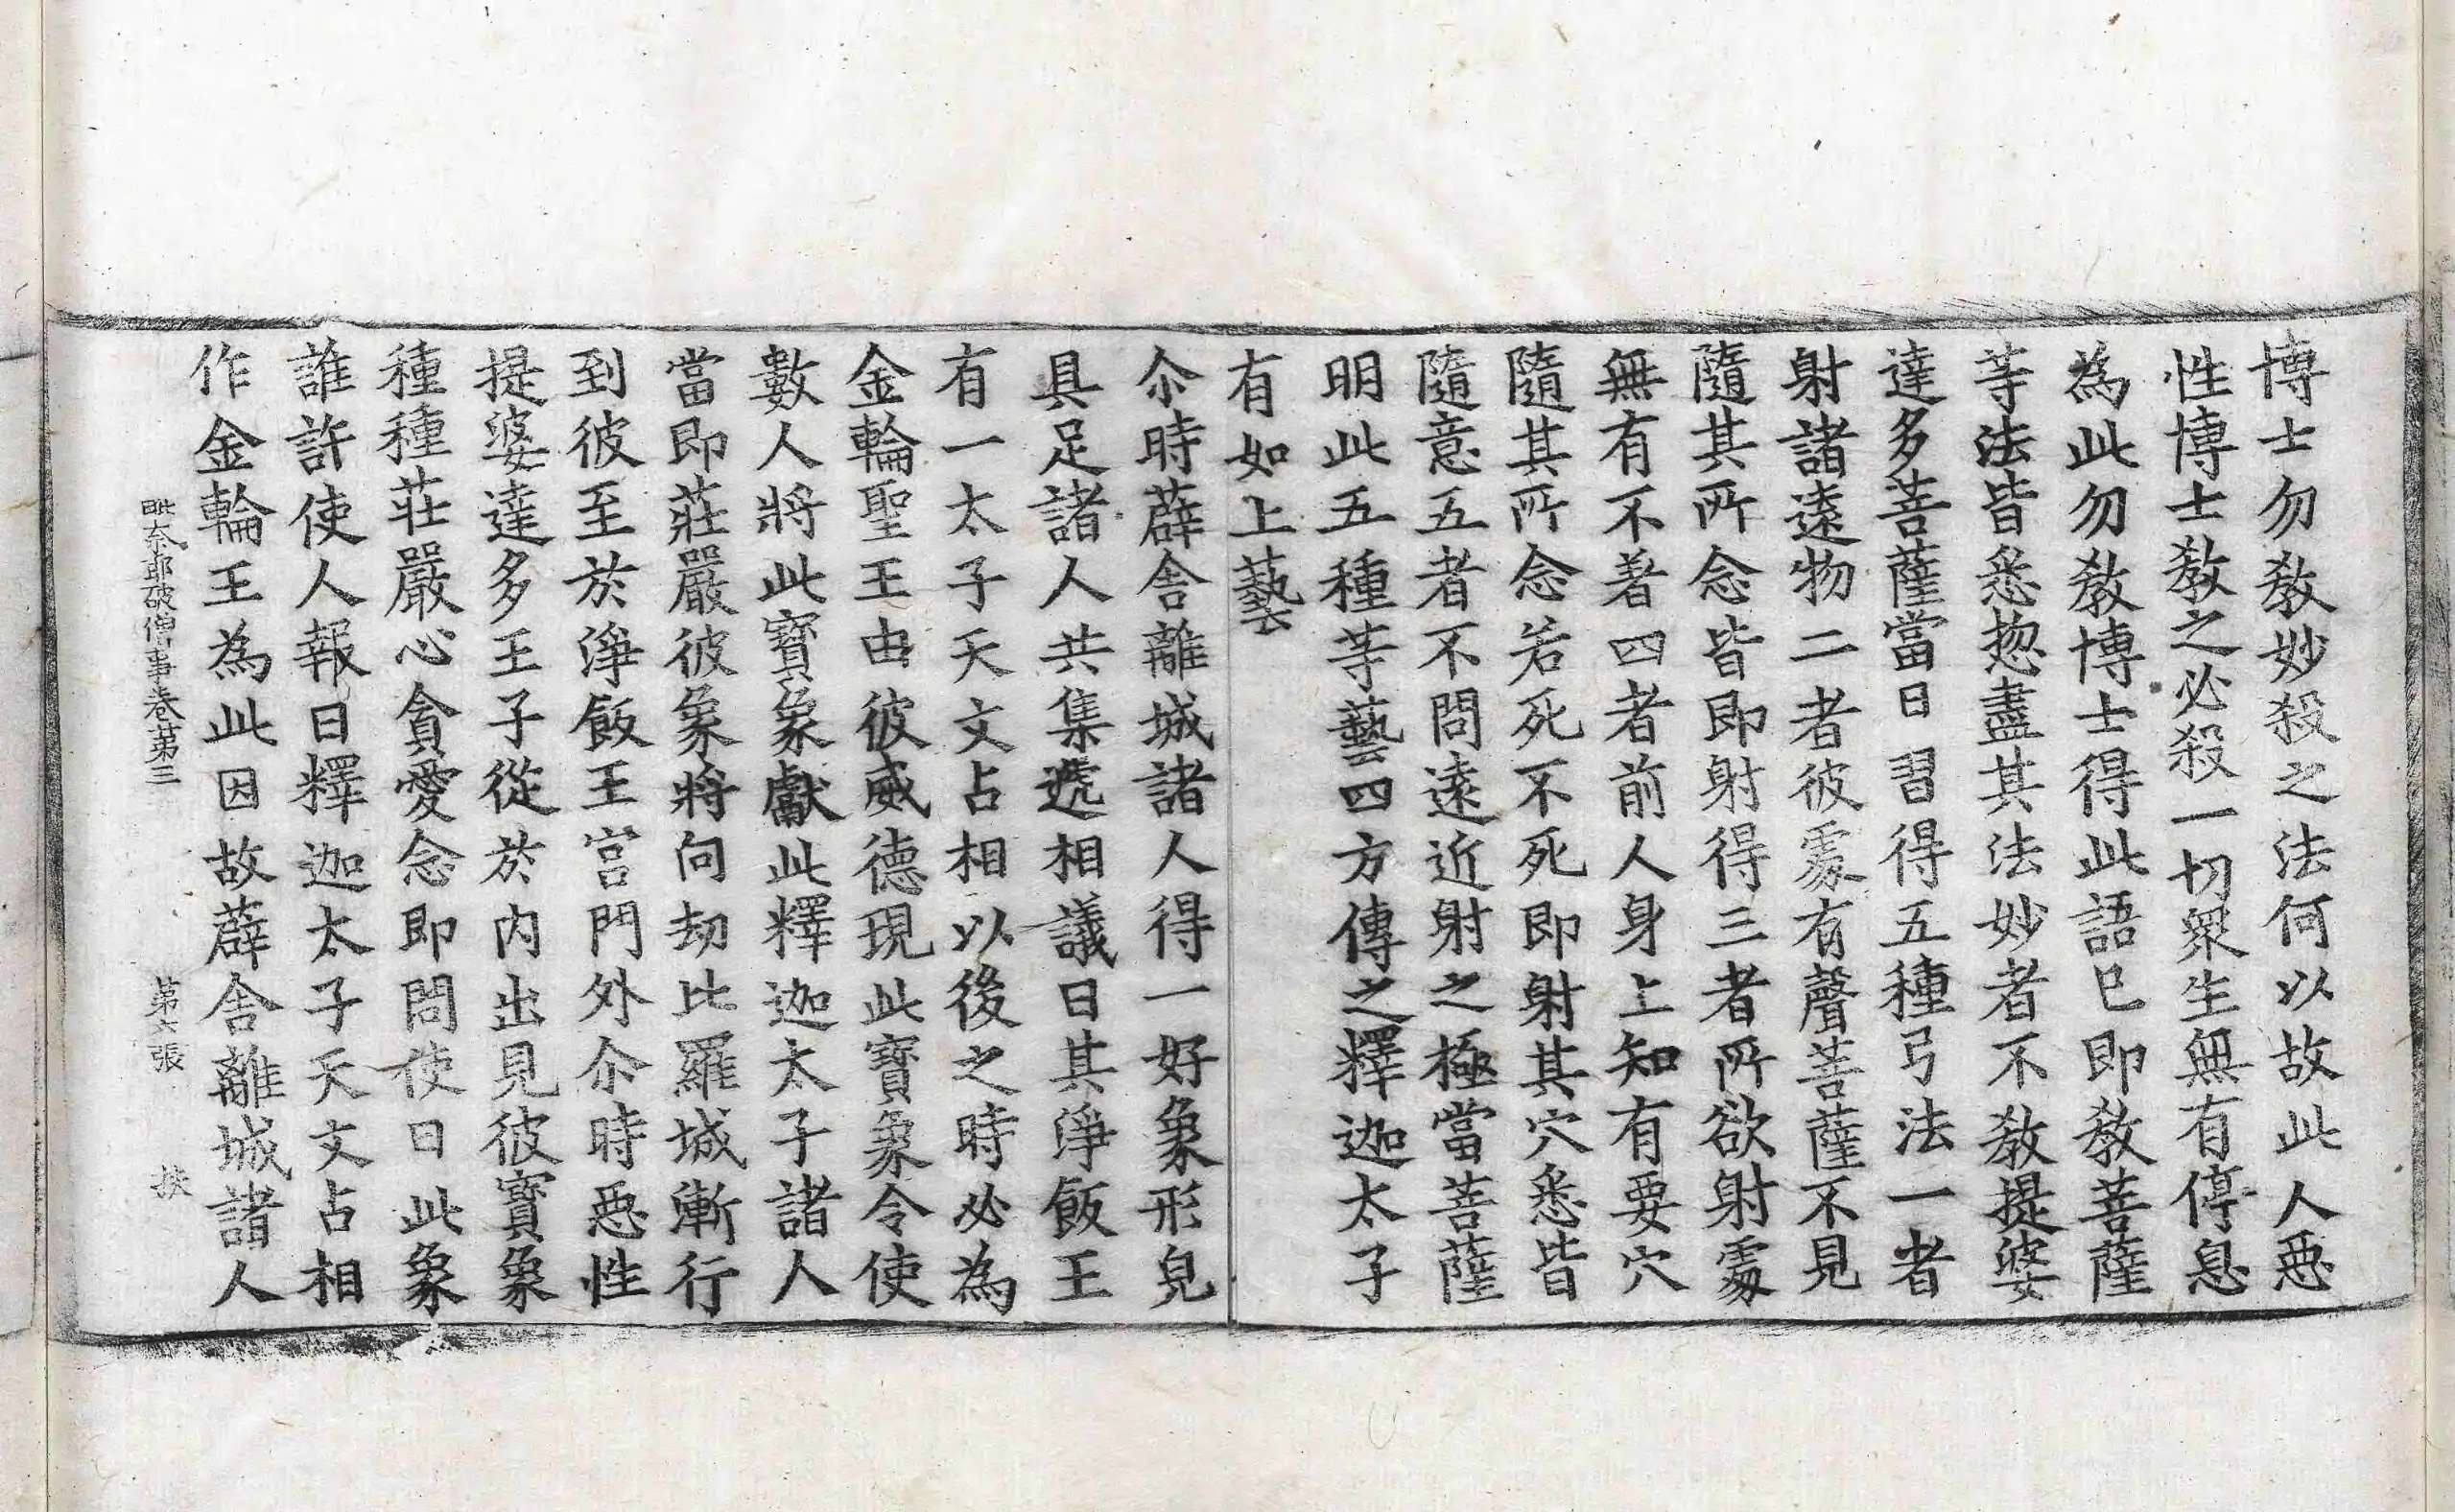 博士勿教妙殺之法何以故此人惡
性博士教之必殺一切衆生無有停息
為此勿教博士得此語已即教菩薩
等法皆悉惣盡其法妙者不教提婆
達多菩薩當日習得五種弓法一者
射諸遠物二者彼處有聲菩薩不見
隨其所念皆即射得三者所欲射處
無有不著四者前人身上知有要穴
隨其所念若死不死即射其穴悉皆
隨意五者不問遠近射之極當菩薩
明此五種等藝四方傳之釋迦太子
有如上藝
尒時薜舍離城諸人得一好象形皃
具足諸人共集遞相議曰其淨飯王
有一太子天文占相以後之時必為
金輪聖王由彼威德現此寶象令使
數人將此寶象獻此釋迦太子諸人
當即莊嚴彼象將向劫比羅城漸行
到彼至於淨飯王宮門外尒時惡性
提婆達多王子從於內出見彼寶象
種種莊嚴心貪愛念即問使曰此象
誰許使人報曰釋迦太子天文占相
作金輪王為此因故薜舍離城諸人
毗奈耶破僧事卷第三 第六張